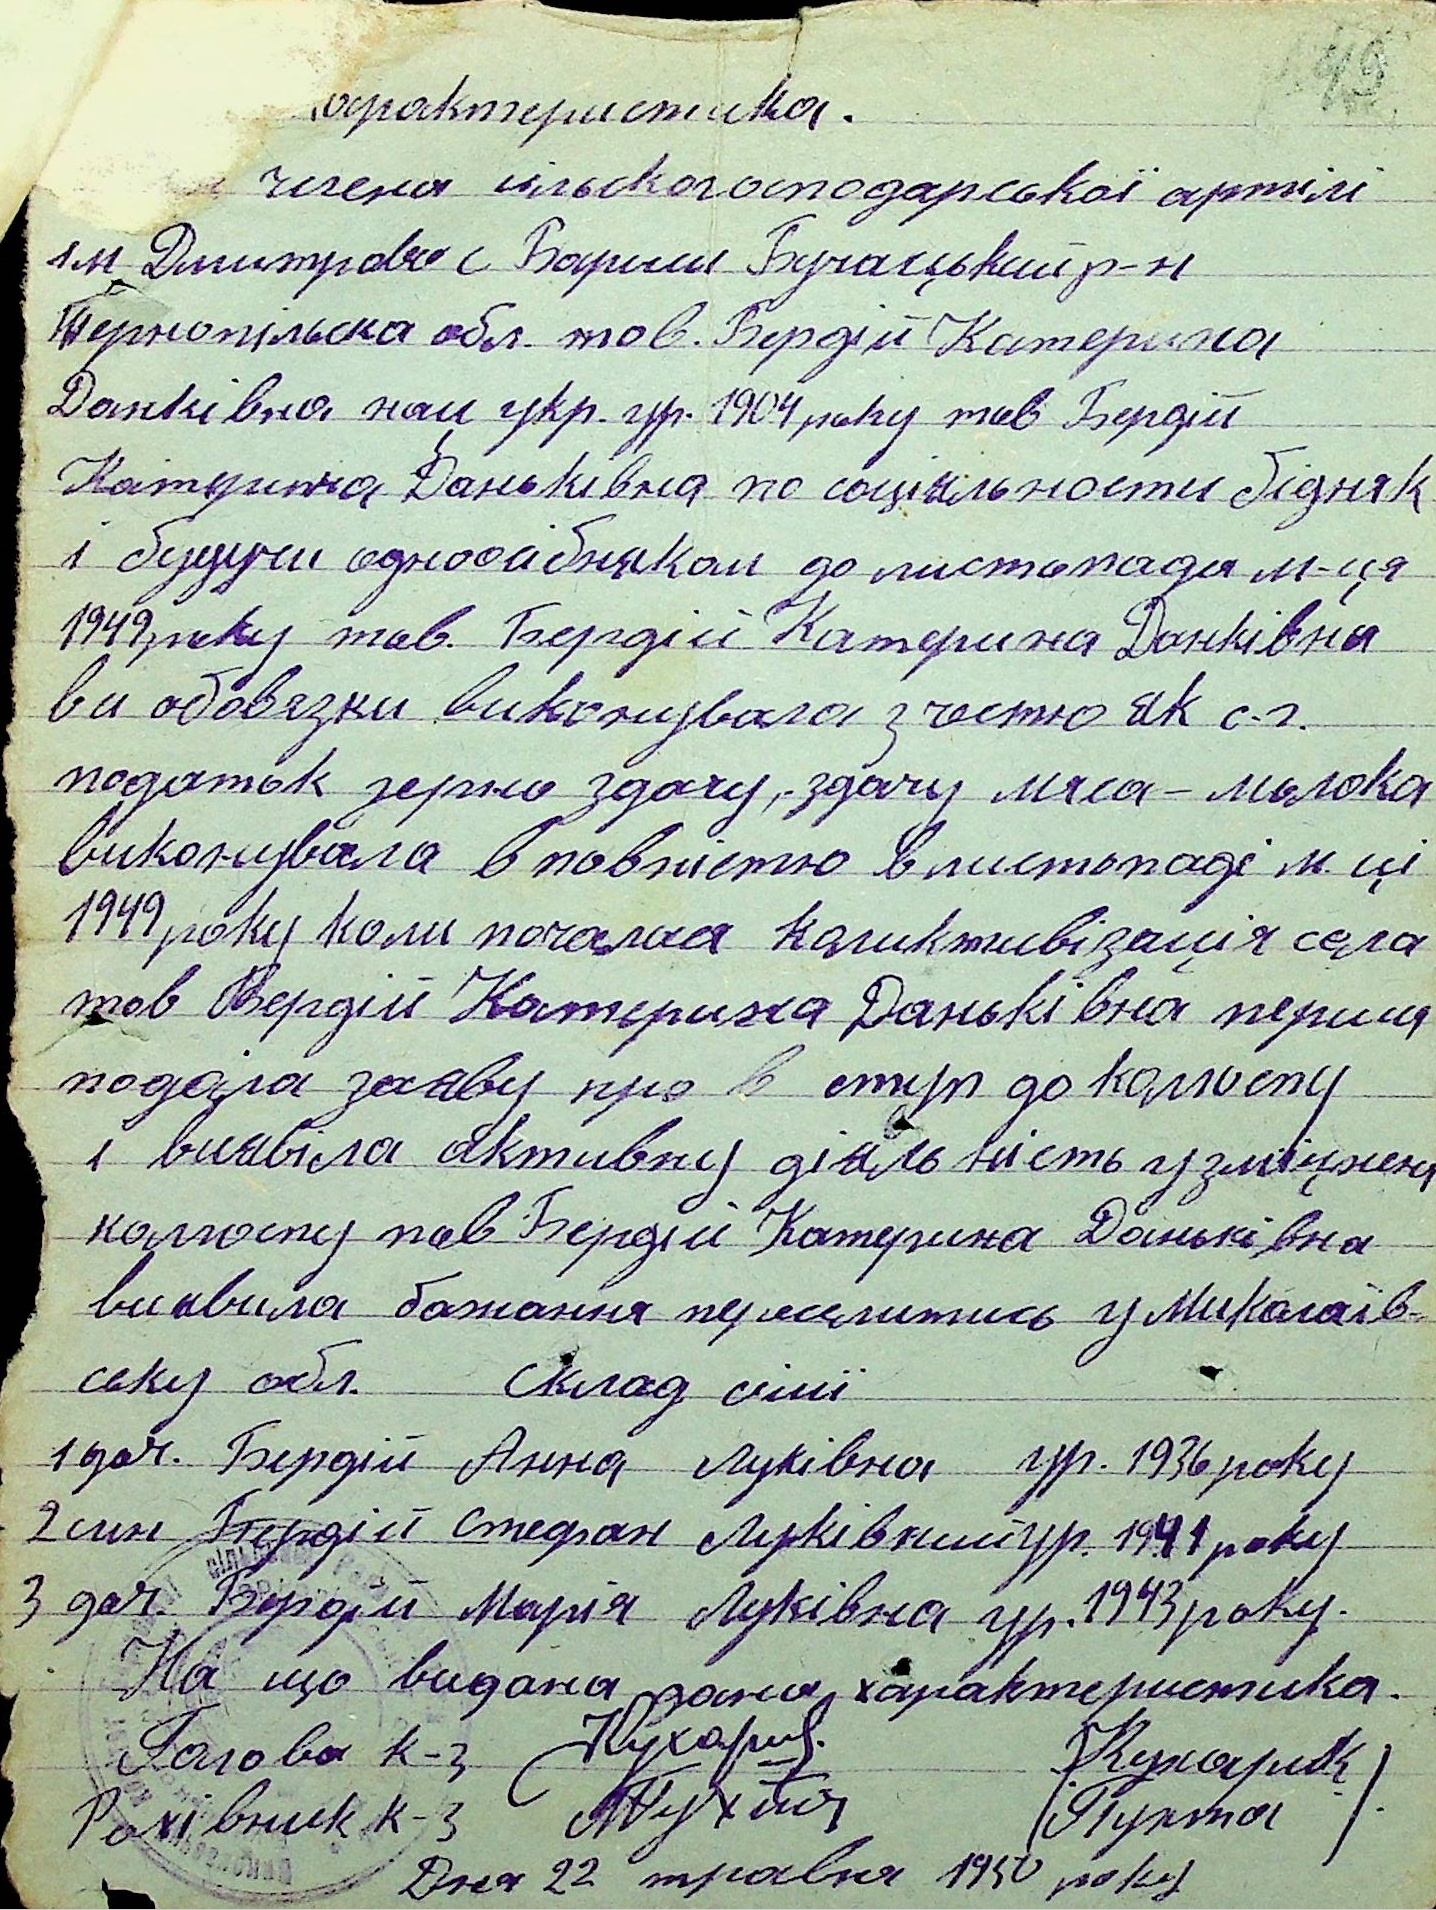 49
характеристика.
члена сільськогосподарської артілі
ім Дмитрова с Бариш Бучацький р-н
Тернопільска обл. тов. Бердій Катерина
Данківна нац укр. ур. 1904 року тов Бердій
Катерина Даньківна по соціяльности бідняк
і будучи одноосібняком до листопада м-ця
1949 року тов. Бердій Катерина Данківна
ви обовязки виконувала з честю як с-г.
податок зерно здачу, здачу мяса – молока
виконувала вповністю в листопаді м. ці
1949 року коли почалася коликтивізація села
тов Бердій Катерина Даньківна перша
подала заяву про в ступ до колгоспу
і виявіла активну діяльність у зміцнені
колгоспу тов Бердій Катерина Даньківна
виявила бажання переселитись у Миколаїв-
ську обл. склад сімї
1 доч. Бердій Анна Луківна ур. 1936 року
2 син Бердій Стефан Луківний ур. 1941 року
3 доч. Бердій Марія Луківна ур. 1943 року.
На що видана дана характеристика.
Голова к-з Кухарик (Кухарик)
Рахівник к-з Пухта (Пухта)
Дня 22 травня 1950 року